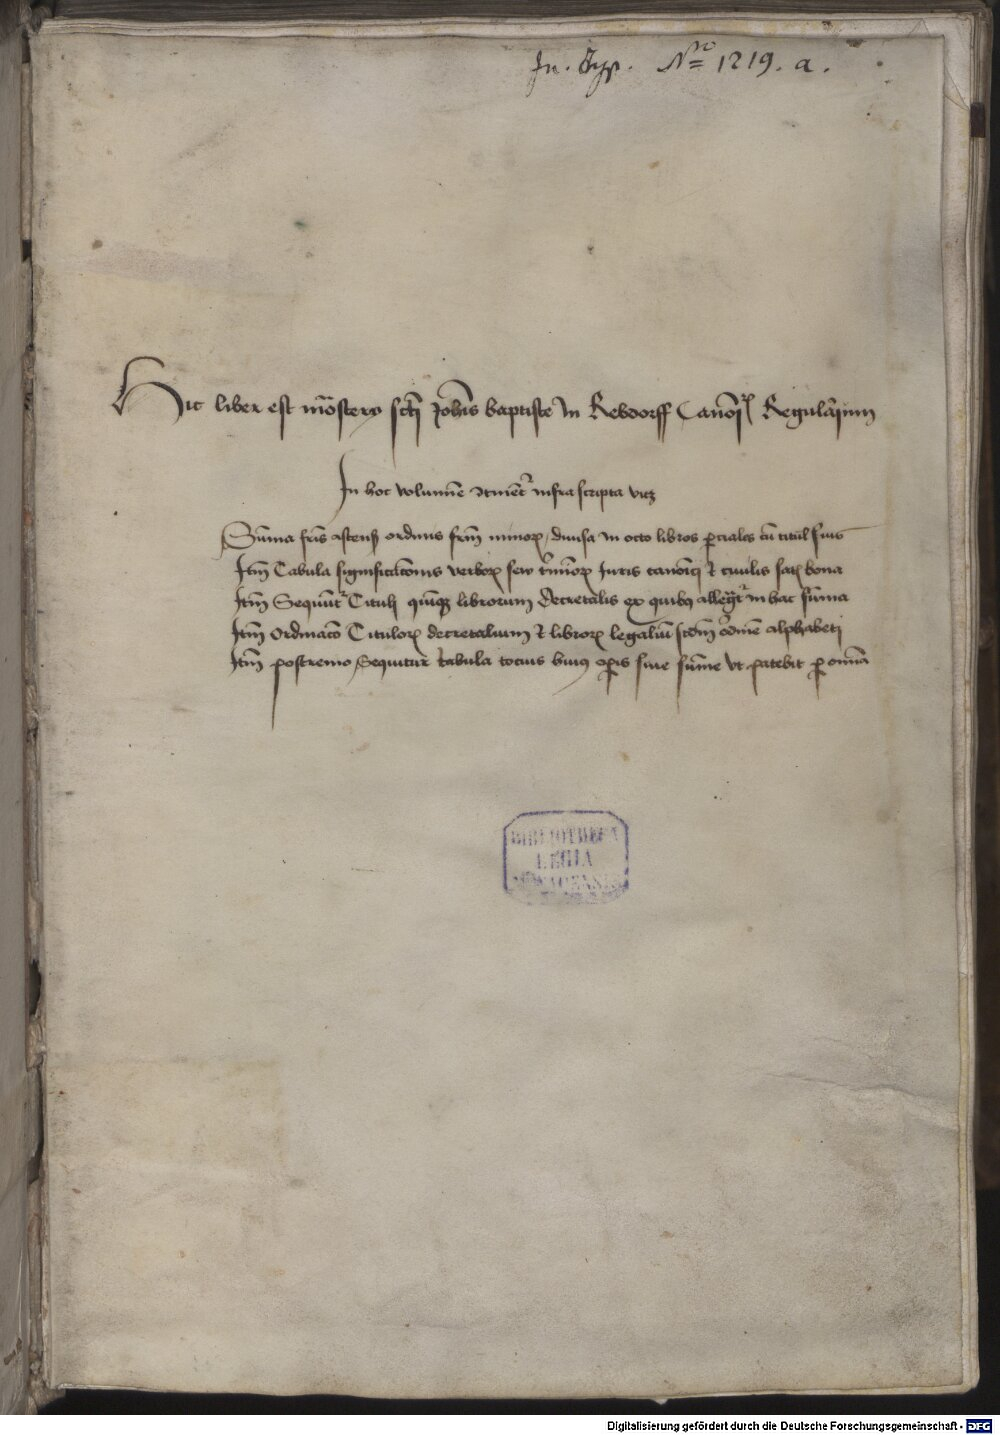 In. Typ. Nro 1219. a.
Hic liber est mo̅stery sct̅i Joha̅is baptiste in Rebdorff Cano̅icoꝝ Regulariu̅m
In hoc volumi̅e ↄtine̅tr̅ infra scripta vicꝫ
Su̅ma fr̅is astens̅ ordinis fr̅m minoꝝ, diuisa in octo libros ꝑciales cu̅ titul̅ suis
It̅m Tabula significac̅onis verboꝝ sew t̅minoꝝ Juris cano̅ici ⁊ ciuilis satꝭ bona
It̅m Sequu̅tr̅ Tituli qui̅qꝫ librorum Decretalis ex quibꝰ allegr̅ in hac su̅ma
It̅m Ordinac̅o Tituloꝝ decretalium ⁊ libroꝝ legaliu̅ scd̅m o̅rdine̅ alphabeti
It̅m postremo Sequitur tabula tocius huiꝰ oꝑis siue su̅me vt patebit ꝑ omnia
BIBLIOTHECA
REGIA
MONACENSIS
Digitalisierung gefördert durch die Deutsche Forschungsgemeinschaft - DFG